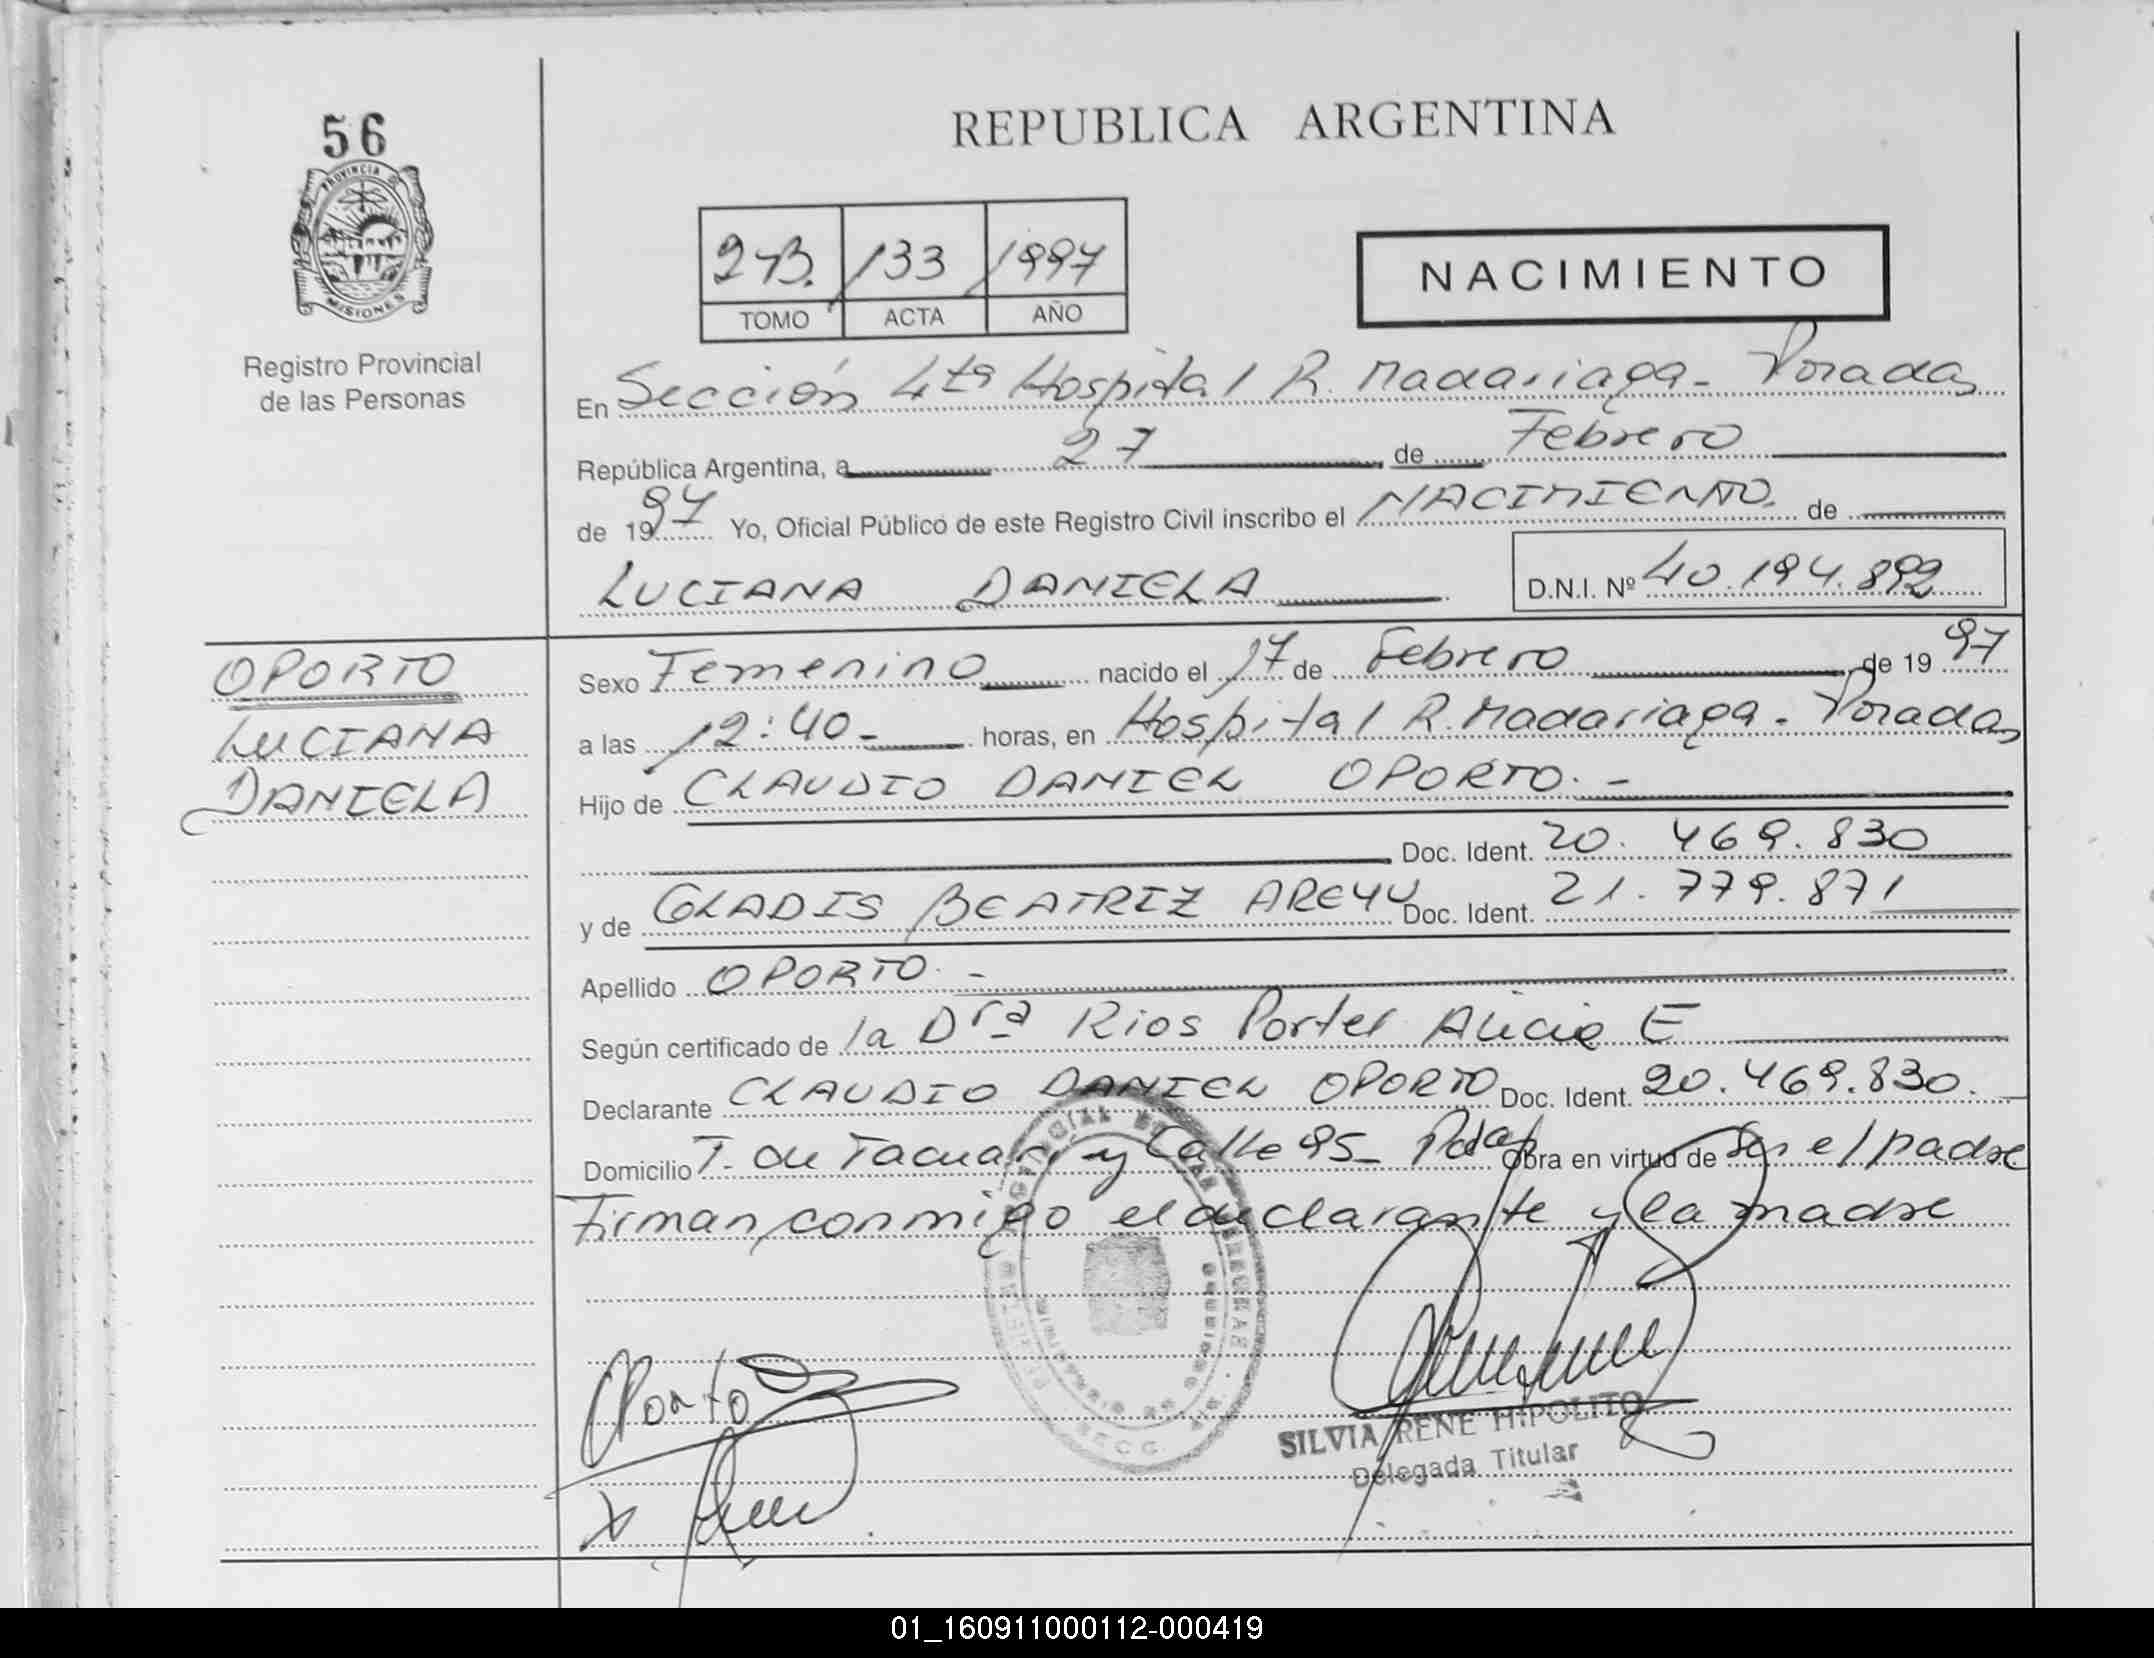 56
PROVINCIA DE
MISIONES
Registro Provincial
de las Personas
REPUBLICA ARGENTINA
2-B. 133 1997
TOMO ACTA AÑO
NACIMIENTO
En Sección 4ta Hospital R. Madariaga - Posadas
República Argentina, a 27 de Febrero
de 1997 Yo, Oficial Público de este Registro Civil inscribo el NACIMIENTO. de
LUCIANA DANIELA D.N.I. Nº 40.194.892
OPORTO
LUCIANA
DANIELA
Sexo Femenino nacido el 17 de Febrero de 1997
a las 12:40 - horas, en Hospital R. Madariaga - Posadas
Hijo de CLAUDIO DANIEL OPORTO. -
Doc. Ident. 20. 469. 830
y de GLADIS BEATRIZ AREYU Doc. Ident. 21. 779. 871
Apellido OPORTO. -
Según certificado de la Dra Rios Portel Alicia E
Declarante CLAUDIO DANIEL OPORTO Doc. Ident. 20.469.830.
Domicilio T. de Tacuari y Calle 95 - Pdas Obra en virtud de Ser el padre
Firman conmigo el declarante y la madre
Oporto
SILVIA RENE HIPOLITO
Delegada Titular
01_160911000112-000419